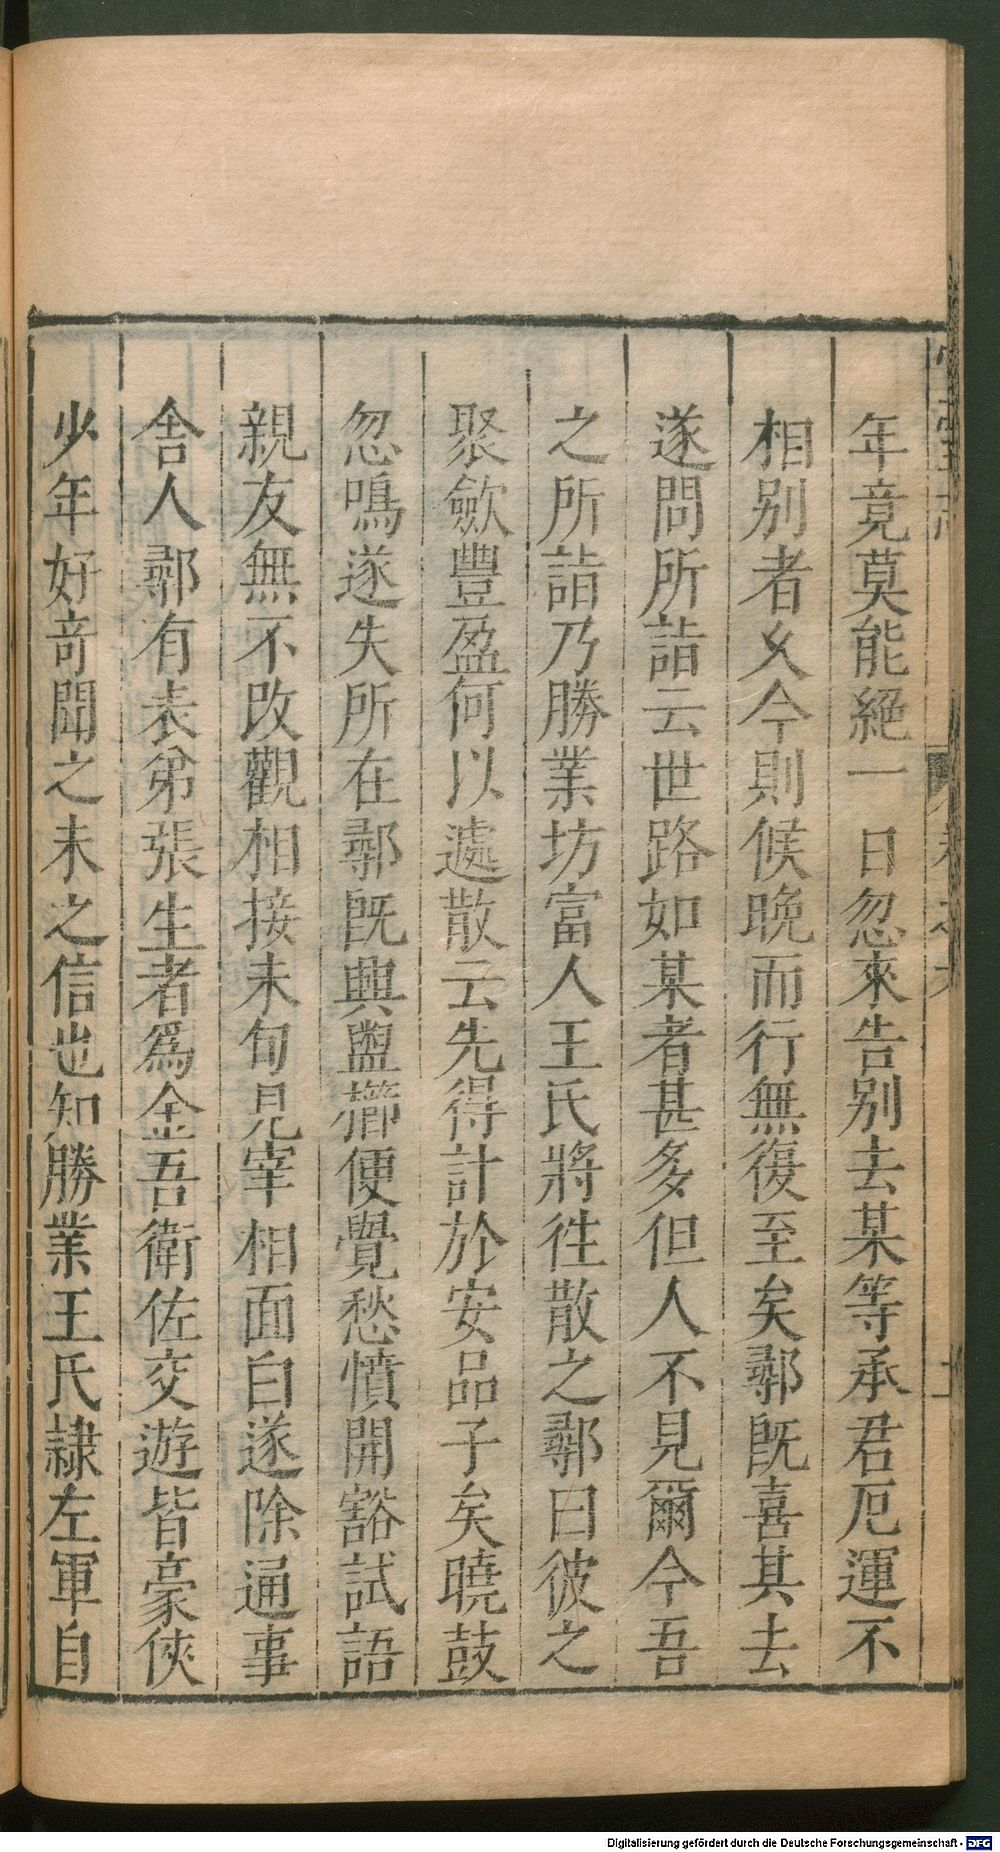 年竟莫能絕一日忽來告别去某等承君厄運不
相别者乆今則候晚而行無復至矣鄩旣喜其去
遂問所詣云世路如某者甚多但人不見爾今吾
之所詣乃勝業坊富人王氏將徃散之鄩曰彼之
聚歛豐盈何以遽散云先得計於安品子矣曉鼓
忽鳴遂失所在鄩旣興盥櫛便覺愁憤開豁試語
親友無不改觀相接未旬見宰相面白遂除通事
舍人鄩有表弟張生者爲金吾衛佐交遊皆豪俠
少年好奇聞之未之信也知勝業王氏隷左軍自
Digitalisierung gefördert durch die Deutsche Forschungsgemeinschaft - DFG